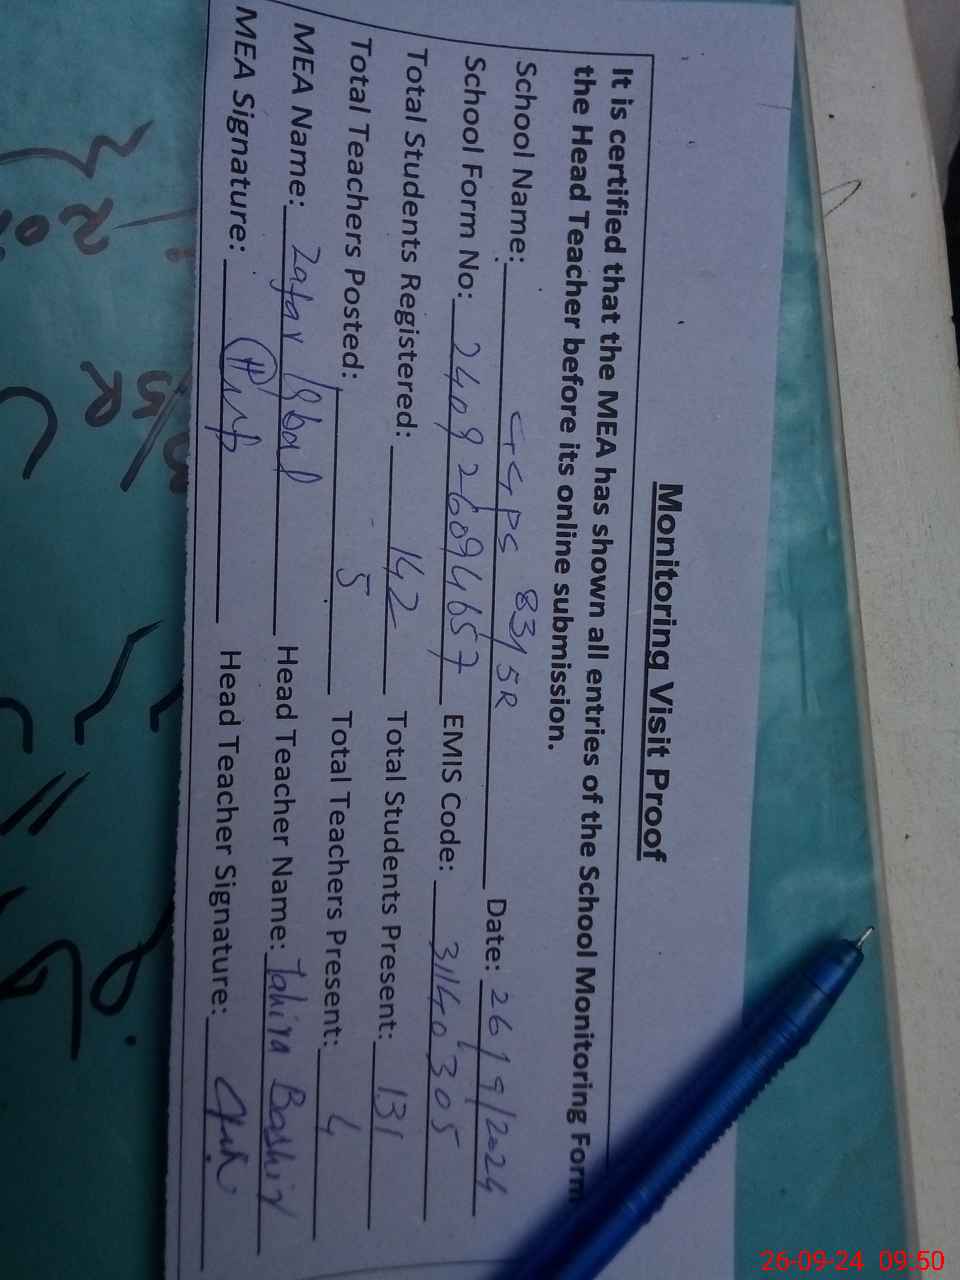 Monitoring Visit Proof
It is certified that the MEA has shown all entries of the School Monitoring Form
the Head Teacher before its online submission.
School Name: GGPS 83/5R Date: 26/9/2024
School Form No: 240926094657 EMIS Code: 31140305
Total Students Registered: 142 Total Students Present: 131
Total Teachers Posted: 5 Total Teachers Present: 4
MEA Name: Zafar Iqbal Head Teacher Name: Tahira Bashir
MEA Signature: Head Teacher Signature:
26-09-24 09:50